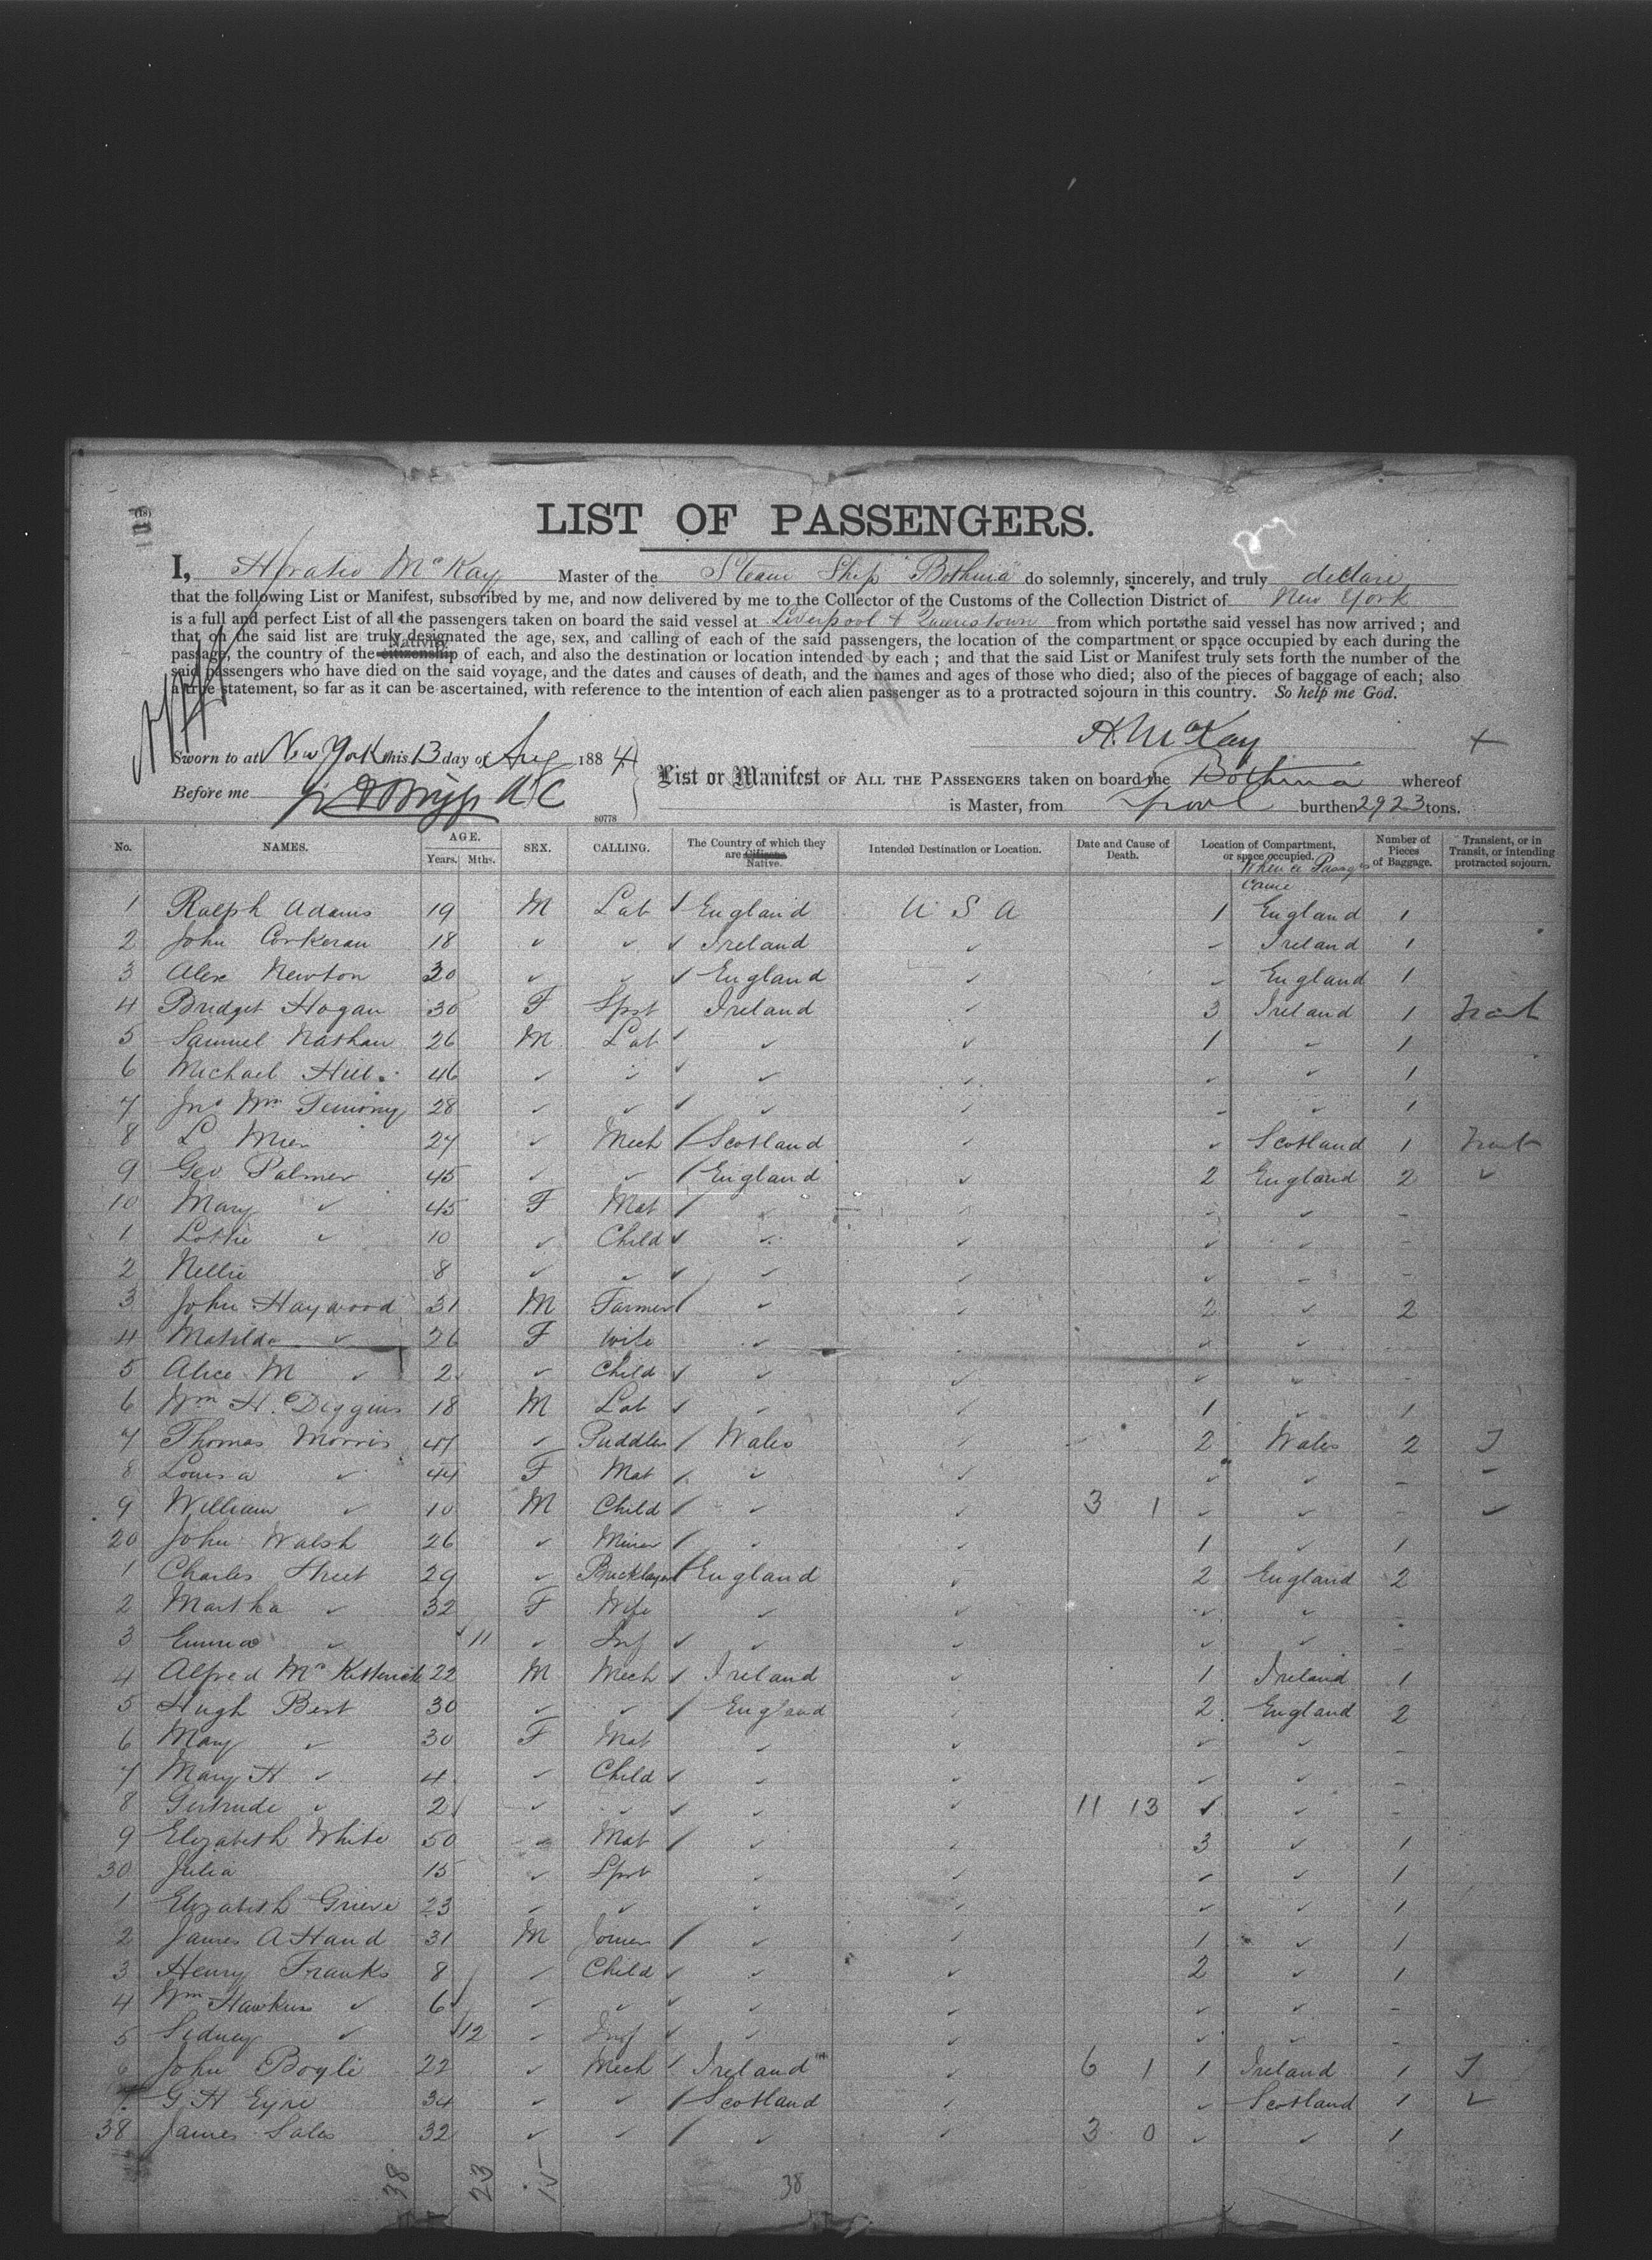 (18)
LIST OF PASSENGERS.
I, Horatio McKay Master of the Steam Ship "Bothnia" do solemnly, sincerely, and truly declare
that the following List or Manifest, subscribed by me, and now delivered by me to the Collector of the Customs of the Collection District of New York
is a full and perfect List of all the passengers taken on board the said vessel at Liverpool & Queenstown from which ports the said vessel has now arrived; and
that on the said list are truly designated the age, sex, and calling of each of the said passengers, the location of the compartment or space occupied by each during the
Nativity
passage, the country of the citizenship of each, and also the destination or location intended by each; and that the said List or Manifest truly sets forth the number of the
said passengers who have died on the said voyage, and the dates and causes of death, and the names and ages of those who died; also of the pieces of baggage of each; also
a true statement, so far as it can be ascertained, with reference to the intention of each alien passenger as to a protracted sojourn in this country. So help me God.
H. McKay
Sworn to at New York this 13 day of Aug 1884
Before me
80778
List or Manifest OF ALL THE PASSENGERS taken on board the Bothnia whereof
is Master, from Lpool burthen 2923 tons.
No. NAMES. AGE. Years. Mths. SEX. CALLING. The Country of which they are Citizens Native. Intended Destination or Location. Date and Cause of Death. Location of Compartment, or space occupied. Number of Pieces of Baggage. Transient, or in Transit, or intending protracted sojourn.
Whence Passgrs came
1 Ralph Adams 19 M Lab ✓ England U S A 1 England 1
2 John Corkeran 18 ✓ ✓ ✓ Ireland ✓ ✓ Ireland 1
3 Alex Newton 30 ✓ ✓ ✓ England ✓ ✓ England 1
4 Bridget Hogan 30 F Spst Ireland ✓ 3 Ireland 1
5 Samuel Nathan 26 M Lab ✓ ✓ ✓ 1 ✓ 1
6 Michael Hill 46 ✓ ✓ ✓ ✓ ✓ ✓ ✓ 1
7 Jno Wm 28 ✓ ✓ ✓ ✓ ✓ ✓ ✓ 1
8 L 27 ✓ Mech / Scotland ✓ ✓ Scotland 1
9 Geo Palmer 45 ✓ ✓ / England ✓ 2 England 2 ✓
10 Mary ✓ 45 F Mat / ✓ ✓ - ✓ -
1 Lottie ✓ 10 ✓ Child ✓ ✓ ✓ ✓ ✓ -
2 Nellie 8 ✓ ✓ ✓ ✓ ✓ ✓ - -
3 John Haywood 31 M Farmer / ✓ ✓ 2 ✓ 2
4 Matilda ✓ 26 F Wife ✓ ✓ ✓ ✓
5 Alice M ✓ 2 ✓ Child ✓ ✓ ✓ ✓ ✓ -
6 Wm H. Diggins 18 M Lab ✓ ✓ ✓ 1 ✓ 1
7 Thomas Morris 47 ✓ Puddler / Wales ✓ 2 Wales 2 T
8 Louisa ✓ 44 F Mat ✓ ✓ ✓ ✓ ✓ - -
9 William ✓ 10 M Child / ✓ ✓ 3 1 ✓ ✓ - ✓
20 John Walsh 26 ✓ Miner / ✓ ✓ 1 ✓ 1
1 Charles Street 29 ✓ Bricklayer / England ✓ 2 England 2
2 Martha ✓ 32 F Wife ✓ ✓ ✓ ✓ -
3 Emma ✓ 11 ✓ Inf ✓ ✓ ✓ ✓ ✓ -
4 Alfred McKitterick 22 M Mech ✓ Ireland ✓ 1 Ireland 1
5 Hugh Best 30 ✓ ✓ / England ✓ 2 England 2
6 Mary ✓ 30 F Mat ✓ ✓ ✓ ✓ -
7 Mary H ✓ 4 ✓ Child ✓ ✓ ✓ ✓ ✓ -
8 Gertrude ✓ 2 ✓ ✓ ✓ ✓ ✓ 11 13 ✓ ✓ -
9 Elizabeth White 50 ✓ Mat / ✓ ✓ 3 ✓ 1
30 Julia 15 ✓ Spst ✓ ✓ ✓ ✓ 1
1 Elizabeth Grieve 23 ✓ ✓ ✓ ✓ ✓ ✓ 1
2 James A Hand 31 M Joiner / ✓ ✓ 1 ✓ 1
3 Henry Franks 8 ✓ Child ✓ ✓ ✓ 2 ✓ 1
4 Wm Hawkins ✓ 6 ✓ ✓ ✓ ✓ ✓ ✓ ✓ -
5 Sidney ✓ 12 ✓ Inf ✓ ✓ ✓ ✓ ✓ -
6 John Boyle 22 ✓ Mech ✓ Ireland ✓ 6 1 1 Ireland 1 T
7 G H Eyre 34 ✓ ✓ / Scotland ✓ ✓ Scotland 1 ✓
38 James Sales 32 ✓ ✓ / ✓ ✓ 3 0 ✓ ✓ 1
38 23 15 38